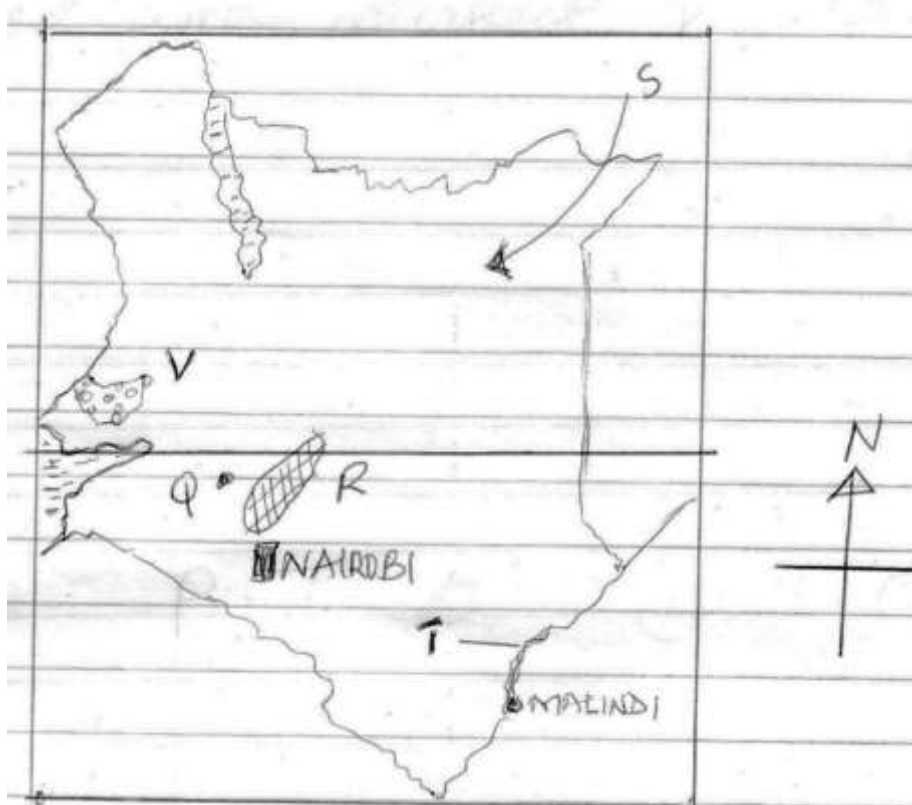 S
V
N
Q
R
NAIROBI
T
MALINDI